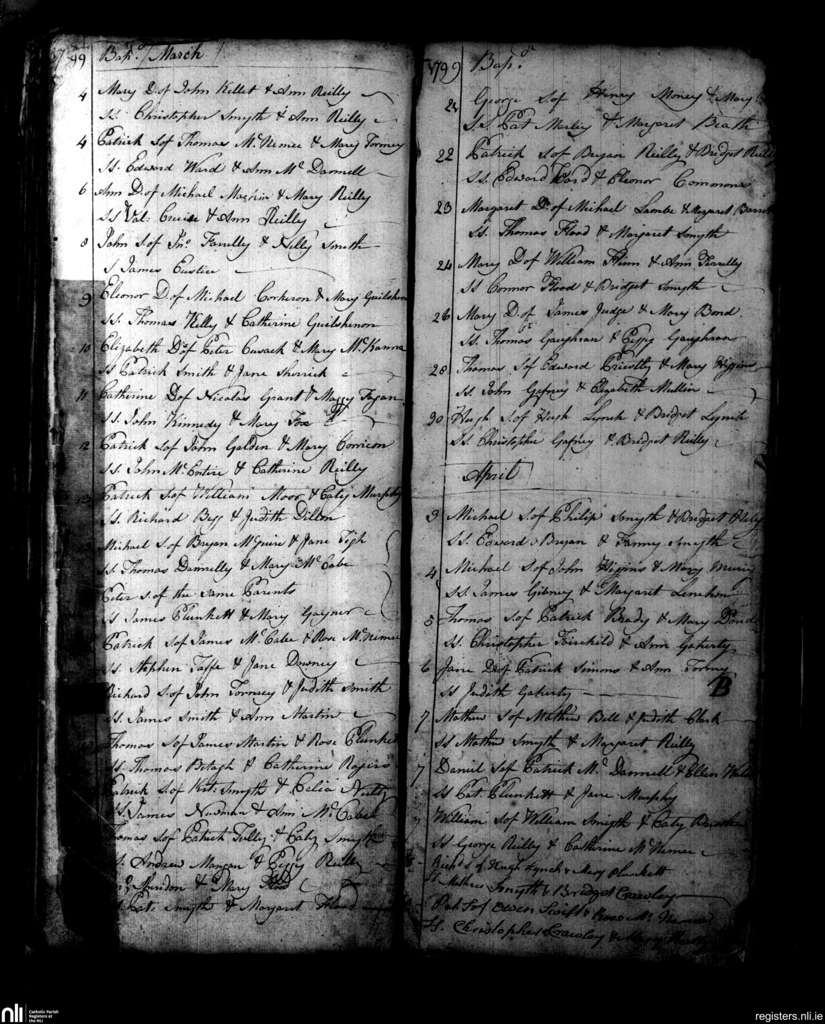 99 Bapd. March
4 Mary D. of John Kellet & Ann Reilly
SS. Christopher Smyth & Ann Reilly
4 Patrick S of Thomas McNemee & Mary Tormey
SS. Edward Ward & Ann Mc Dannell
6 Ann D. of Michael & Mary Reilly
SS Val: Cruise & Ann Reilly
8 John S of Jno. Farrelly & Nelly Smith
S James Eustier
9 Eleonor D. of Michael Corkeron & Mary Guilshenon
SS. Thomas Kelly & Catherine Guilshenon
10 Elizabeth D. of Peter Cusack & Mary McKanna
SS Patrick Smith & Jane
11 Catherine D of Nicolas Grant & Fagan
SS. John Kennedy & Mary Fox
12 Patrick S of John Golden & Mary
SS. John McEntire & Catherine Reilly
Patrick S of William Moor & Caty Murphy
SS. Richard Begg & Judith Dillon
Michael S. of Bryan McGuire & Jane Tigh
SS Thomas Dannelly & Mary McCabe
Peter S. of the same Parents
SS James Plunkett & Mary Gaynor
Patrick S of James McCabe & Rose McNemee
SS. Stephen Taffe & Jane Downey
Richard S. of John Tormey & Judith Smith
SS. James Smith & Ann Martin
Thomas S of James Martin & Rose Plunket
SS. Thomas & Catherine Rogers
Patrick S of Smyth & Celia
SS. James Newman & Ann McCabe
Thomas S of Patrick Tully & Caty Smyth
S. Andrew Mangan & Peggy Reilly
Sheridon & Mary
Pat. Smyth & Margaret
1799 Bapd.
21 George S of Henry & Mary
SS. Pat Marley & Margaret Heath
22 Patrick S of Bryan Reilly & Bridget Reilly
SS. Edward Ward & Eleonor Commons
23 Margaret D. of Michael Lambe & Margaret
SS. Thomas Flood & Margaret Smyth
24 Mary D of William Flinn & Ann Farrelly
SS Connor Flood & Bridget Smyth
26 Mary D. of James Judge & Mary Bond
SS. Thomas Gaughran & Peggy Gaughran
28 Thomas S of Edward Priestly & Mary Higgins
SS. John Gafney & Elizabeth Mullin
30 Hugh S. of Hugh Lynch & Bridget Lynch
SS Christopher Gafney & Bridget Reilly
April
3 Michael S. of Philip Smyth & Bridget
SS. Edward Bryan & Fanny Smyth
4 Michael S. of John Higgins & Mary
SS James Gibney & Margaret Lenehon
5 Thomas S of Patrick Brady & Mary
SS. Christopher Fairchild & Ann Gaherty
6 Jane D of Patrick Simons & Ann Tormey
SS Judith Gaherty
7 Mathew S of Mathew Bell & Judith Clark
SS Mathew Smyth & Margaret Reilly
7 Daniel S of Patrick Mc Dannell & Ellen
SS Pat Plunkett & Jane Murphy
William S of William Smyth & Caty
SS George Reilly & Catherine McNemee
of Hugh Lynch & Mary Plunkett
SS Mathew Smyth & Bridget Crawley
Pat S of Owen Swift & Rose McNemee
SS. Christopher Crawley & Mary
nli
Catholic Parish
Registers at
the NLI
registers.nli.ie